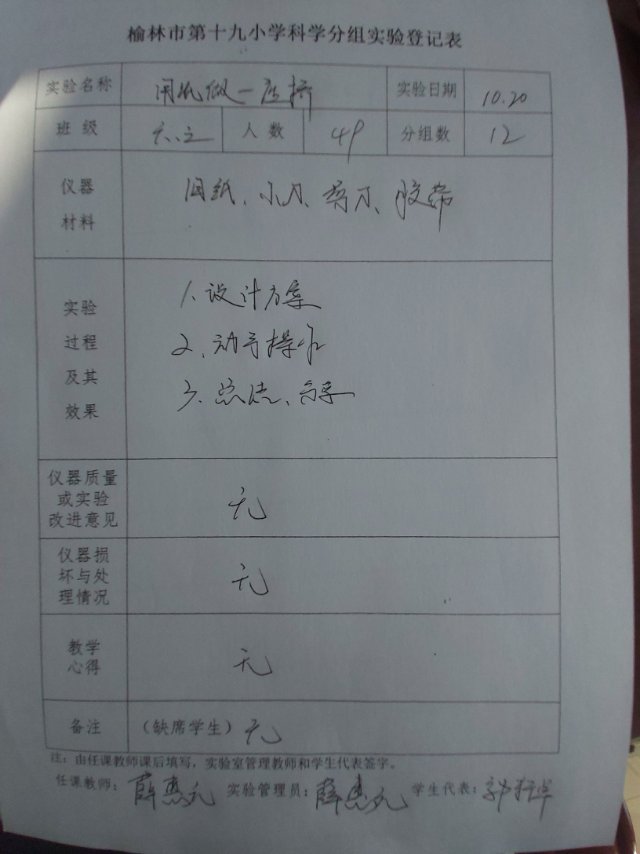 榆林市第十九小学科学分组实验登记表
实验名称 用纸做一座桥 实验日期 10.20
班级 六.2 人数 49 分组数 12
仪器材料 用纸、小刀、剪刀、胶带
实验过程及其效果
1、设计方案
2、动手操作
3、总结、分享
仪器质量或实验改进意见 无
仪器损坏与处理情况 无
教学心得 无
备注 (缺席学生) 无
注:由任课教师课后填写,实验室管理教师和学生代表签字。
任课教师: 薛惠 实验管理员: 薛惠 学生代表: